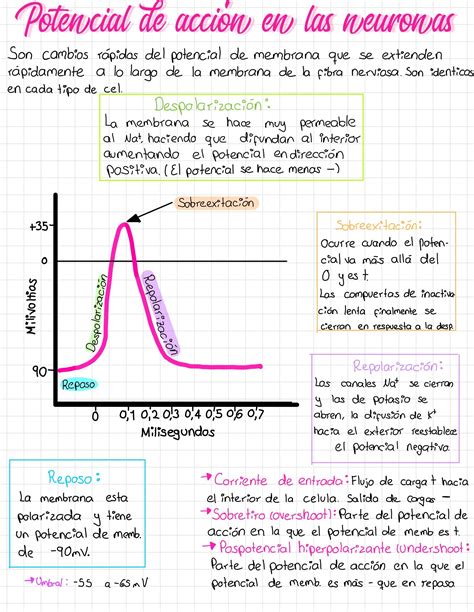 Potencial de acción en las neuronas
Son cambios rápidos del potencial de membrana que se extienden
rápidamente a lo largo de la membrana de la fibra nerviosa. Son identicos
en cada tipo de cel.
Despolarización:
La membrana se hace muy permeable
al Na+, haciendo que difundan al interior
aumentando el potencial en dirección
positiva. (El potencial se hace menos -)
Sobreexitación
+35
0
90-
Milivoltios
Despolarización
Repolarización
Reposo
0 0,1 0,2 0,3 0,4 0,5 0,6 0,7
Milisegundos
Sobreexitación:
Ocurre cuando el poten-
cial va más allá del
0 y es +
Las compuertas de inactiva
ción lenta finalmente se
cierran en respuesta a la desp.
Repolarización:
Los canales Na+ se cierran
y los de potasio se
abren, la difusión de K+
hacia el exterior reestablece
el potencial negativo.
Reposo:
La membrana esta
polarizada y tiene
un potencial de memb.
de -90mV.
→Umbral: -55 a -65mV
→Corriente de entrada: Flujo de carga + hacia
el interior de la celula. Salida de cargas -
→Sobretiro (overshoot): Parte del potencial de
acción en la que el potencial de memb es +.
→Pospotencial hiperpolarizante (undershoot:
Parte del potencial de acción en la que el
potencial de memb. es más - que en reposo.